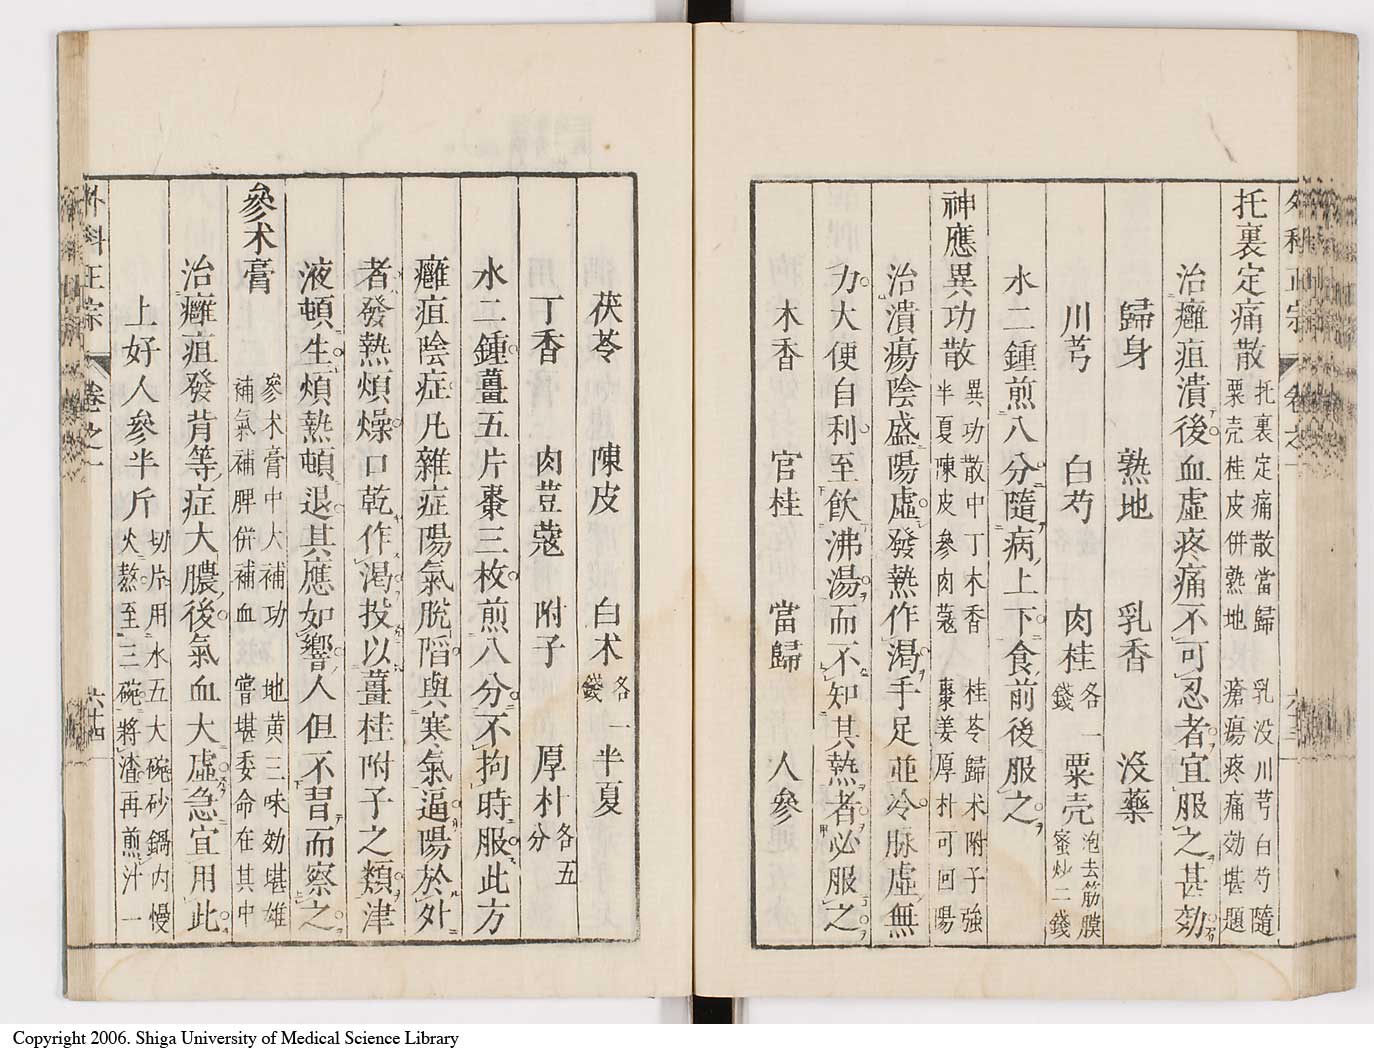 外科正宗 卷之一 六十三
托裏定痛散 托裏定痛散當歸 乳没川芎白芍隨
粟壳桂皮併熟地 瘡瘍疼痛効堪題
治癰疽潰後血虛疼痛不可忍者宜服之甚効
歸身 熟地 乳香 沒藥
川芎 白芍 肉桂各一錢 粟壳泡去筋膜蜜炒二錢
水二鍾煎八分隨病上下食前後服之
神應異功散 異功散中丁木香 桂苓歸术附子強
半夏陳皮參肉蔻 棗姜厚朴可回陽
治潰瘍陰盛陽虛發熱作渴手足並冷脉虛無
力大便自利至飲沸湯而不知其熱者必服之
木香 官桂 當歸 人參
茯苓 陳皮 白术各一錢 半夏
丁香 肉荳蔻 附子 厚朴各五分
水二鍾薑五片棗三枚煎八分不拘時服此方
癰疽陰症凡雜症陽氣脫陷與寒氣逼陽於外
者發熱煩燥口乾作渴投以薑桂附子之類津
液頓生煩熱頓退其應如響人但不肯而察之
參术膏 參术膏中大補功 地黃三味効堪雄
補氣補脾併補血 嘗堪委命在其中
治癰疽發背等症大膿後氣血大虛急宜用此
上好人參半斤切片用水五大碗砂鍋内慢
火熬至三碗將渣再煎汁一
外科正宗 卷之一 六十四
Copyright 2006. Shiga University of Medical Science Library